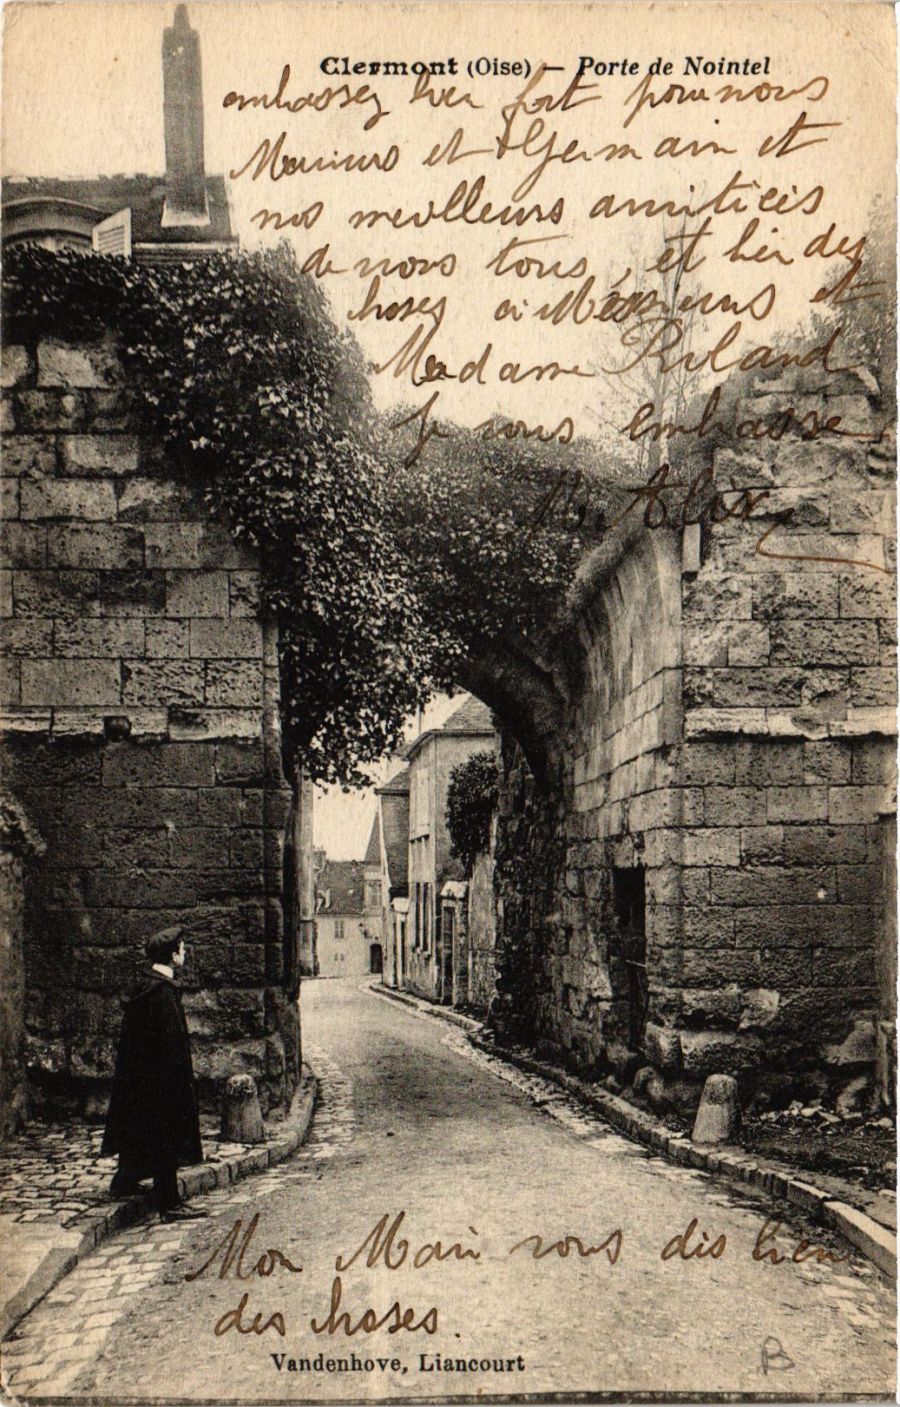 Clermont (Oise) — Porte de Nointel
embrassez bien fort pour nous
et Germain et
nos meilleurs amitiées
de nous tous, et bien des
choses à Messieurs et
Madame Roland
Je vous embrasse
M. Alix
Mon Mari vous dis bien
des choses.
Vandenhove, Liancourt
B